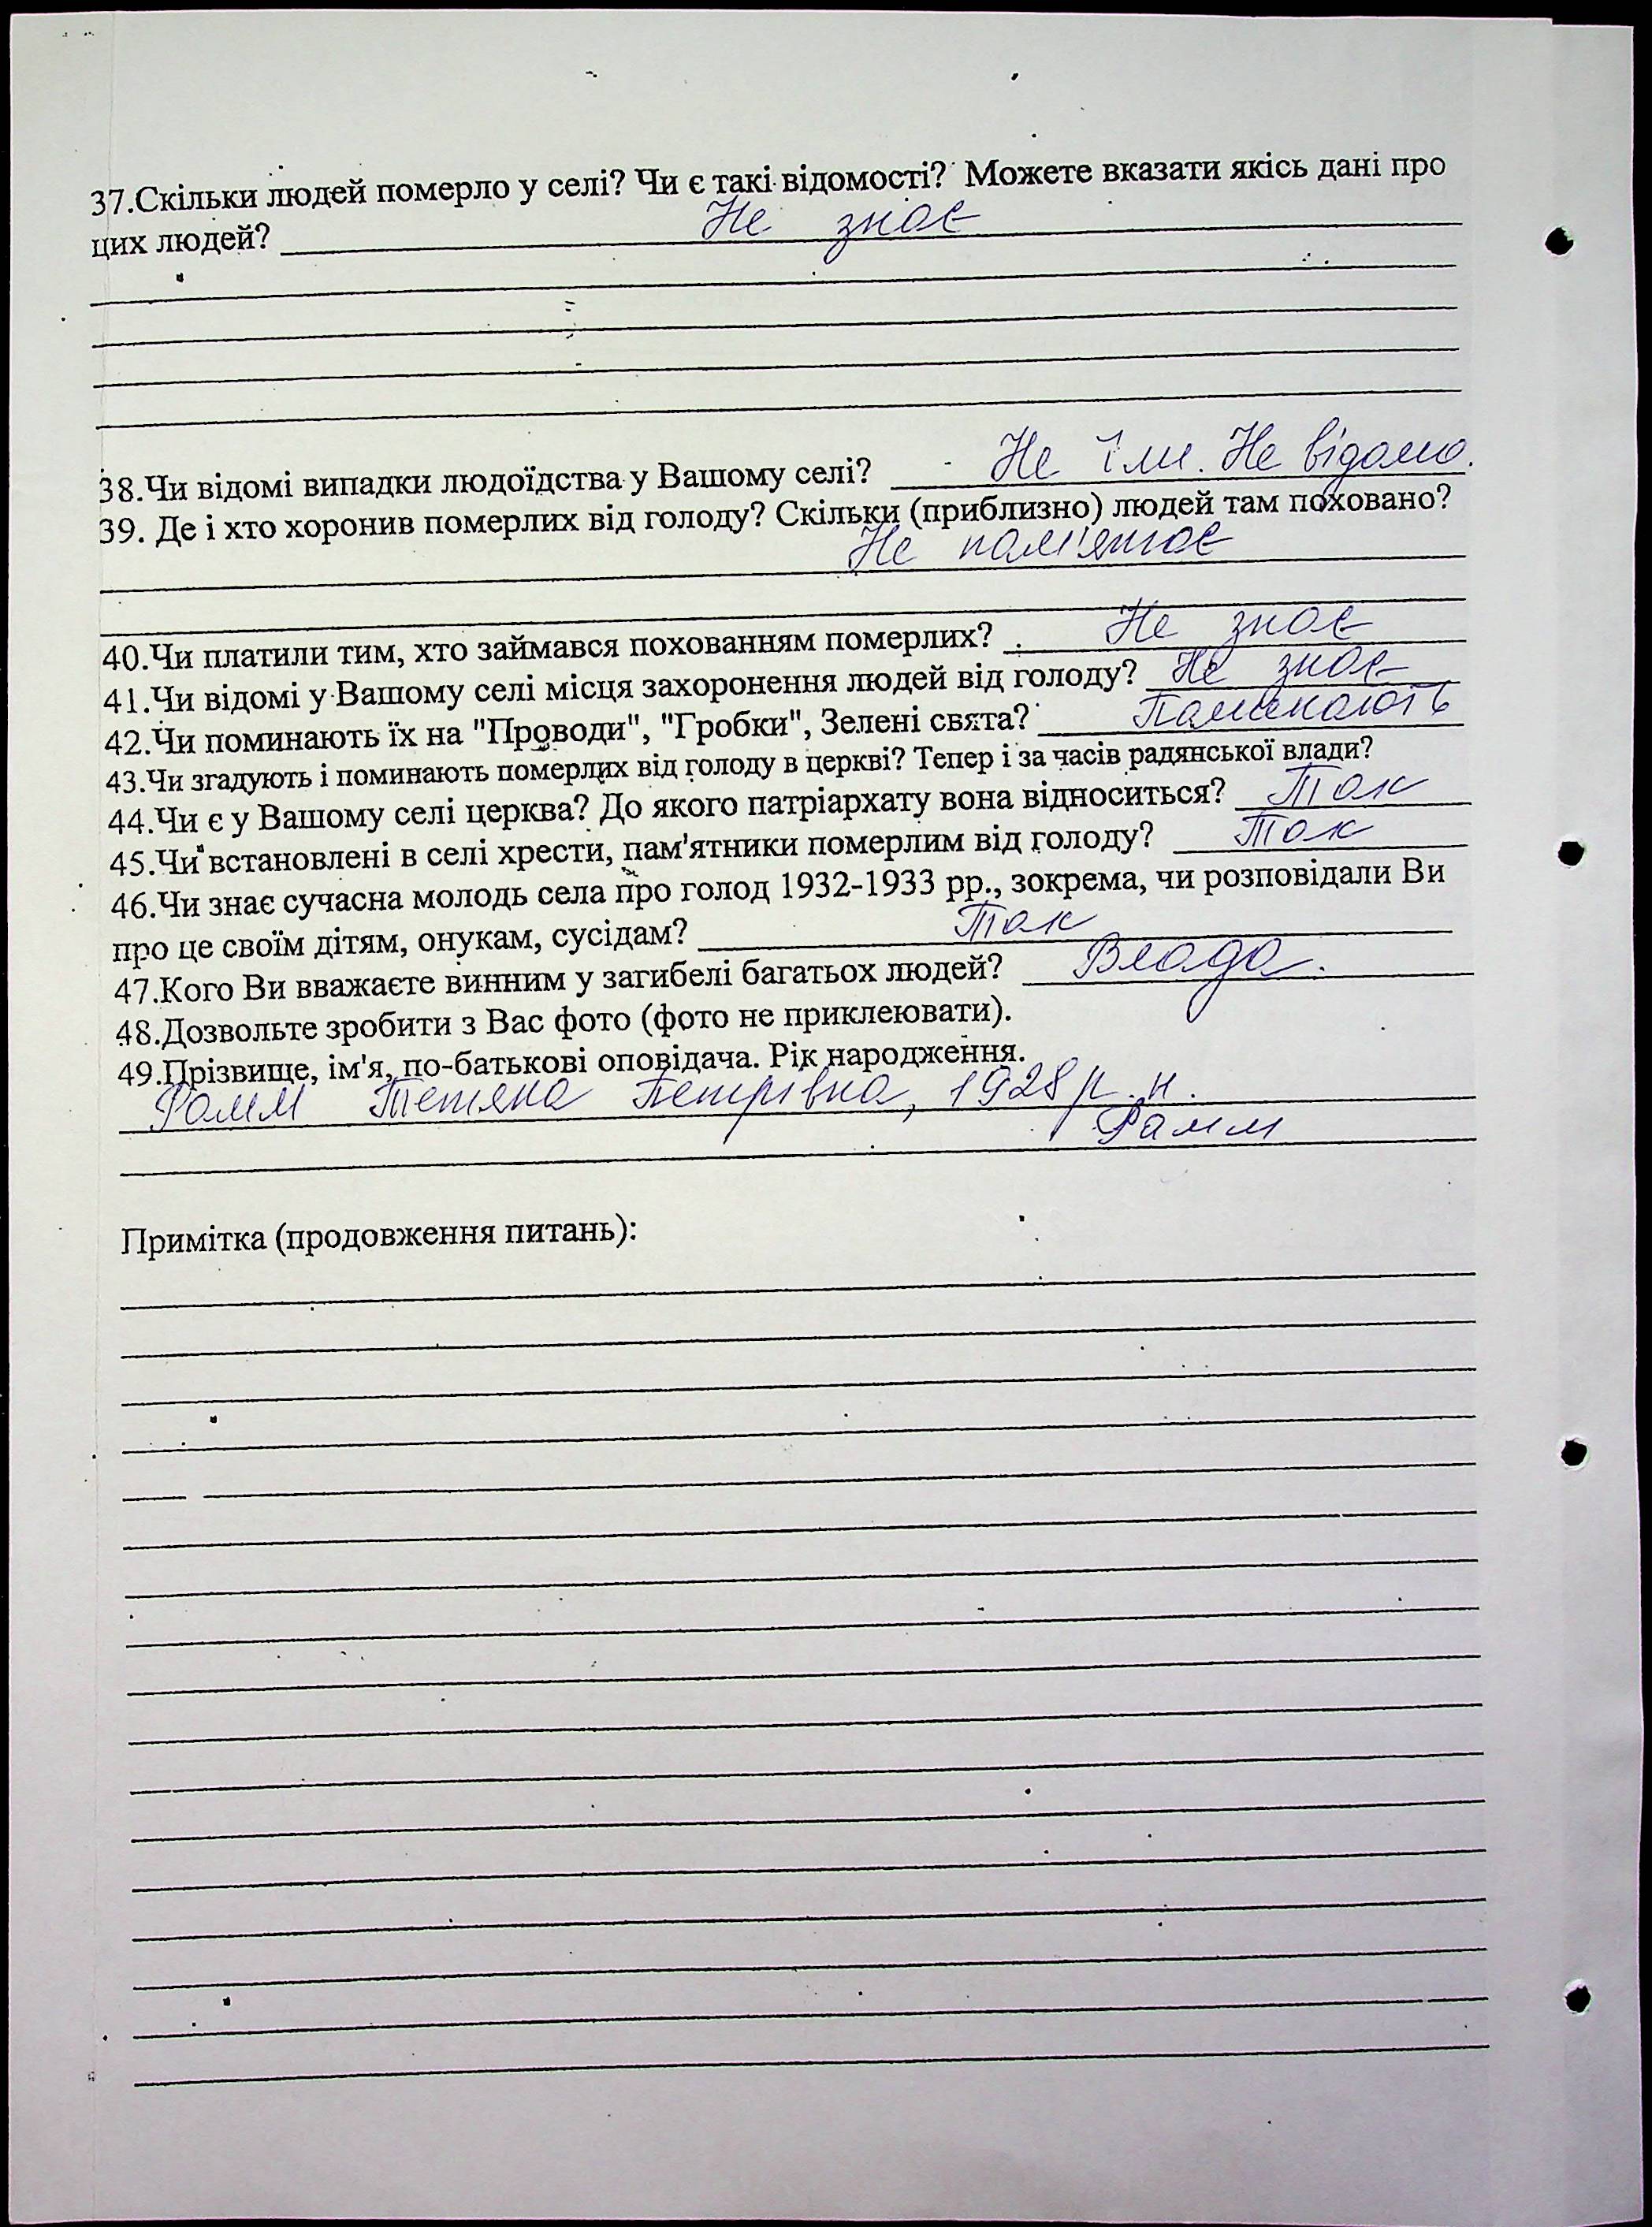 37.Скільки людей померло у селі? Чи є такі відомості? Можете вказати якісь дані про
цих людей? Не знає
38.Чи відомі випадки людоїдства у Вашому селі? Не їли. Не відомо.
39. Де і хто хоронив померлих від голоду? Скільки (приблизно) людей там поховано?
Не пам'ятає
40.Чи платили тим, хто займався похованням померлих? Не знає
41.Чи відомі у Вашому селі місця захоронення людей від голоду? Не знає
42.Чи поминають їх на "Проводи", "Гробки", Зелені свята? Поминають
43.Чи згадують і поминають померлих від голоду в церкві? Тепер і за часів радянської влади?
44.Чи є у Вашому селі церква? До якого патріархату вона відноситься? Так
45.Чи встановлені в селі хрести, пам'ятники померлим від голоду? Так
46.Чи знає сучасна молодь села про голод 1932-1933 рр., зокрема, чи розповідали Ви
про це своїм дітям, онукам, сусідам? Так
47.Кого Ви вважаєте винним у загибелі багатьох людей? Влада.
48.Дозвольте зробити з Вас фото (фото не приклеювати).
49.Прізвище, ім'я, по-батькові оповідача. Рік народження.
Рамм Тетяна Петрівна, 1928 р.н.
Рамм
Примітка (продовження питань):